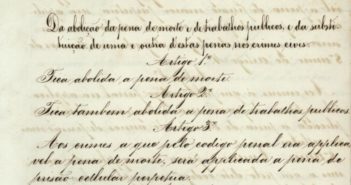 Da abolição da pena de morte e de trabalhos publicos, e da substi-
tuição de uma e outra d'estas penas nos crimes civis.
Artigo 1º
Fica abolida a pena de morte.
Artigo 2º
Fica tambem abolida a pena de trabalhos publicos.
Artigo 3º
Aos crimes a que pelo codigo penal era applica-
vel a pena de morte, será applicada a pena de
prisão cellular perpetua.